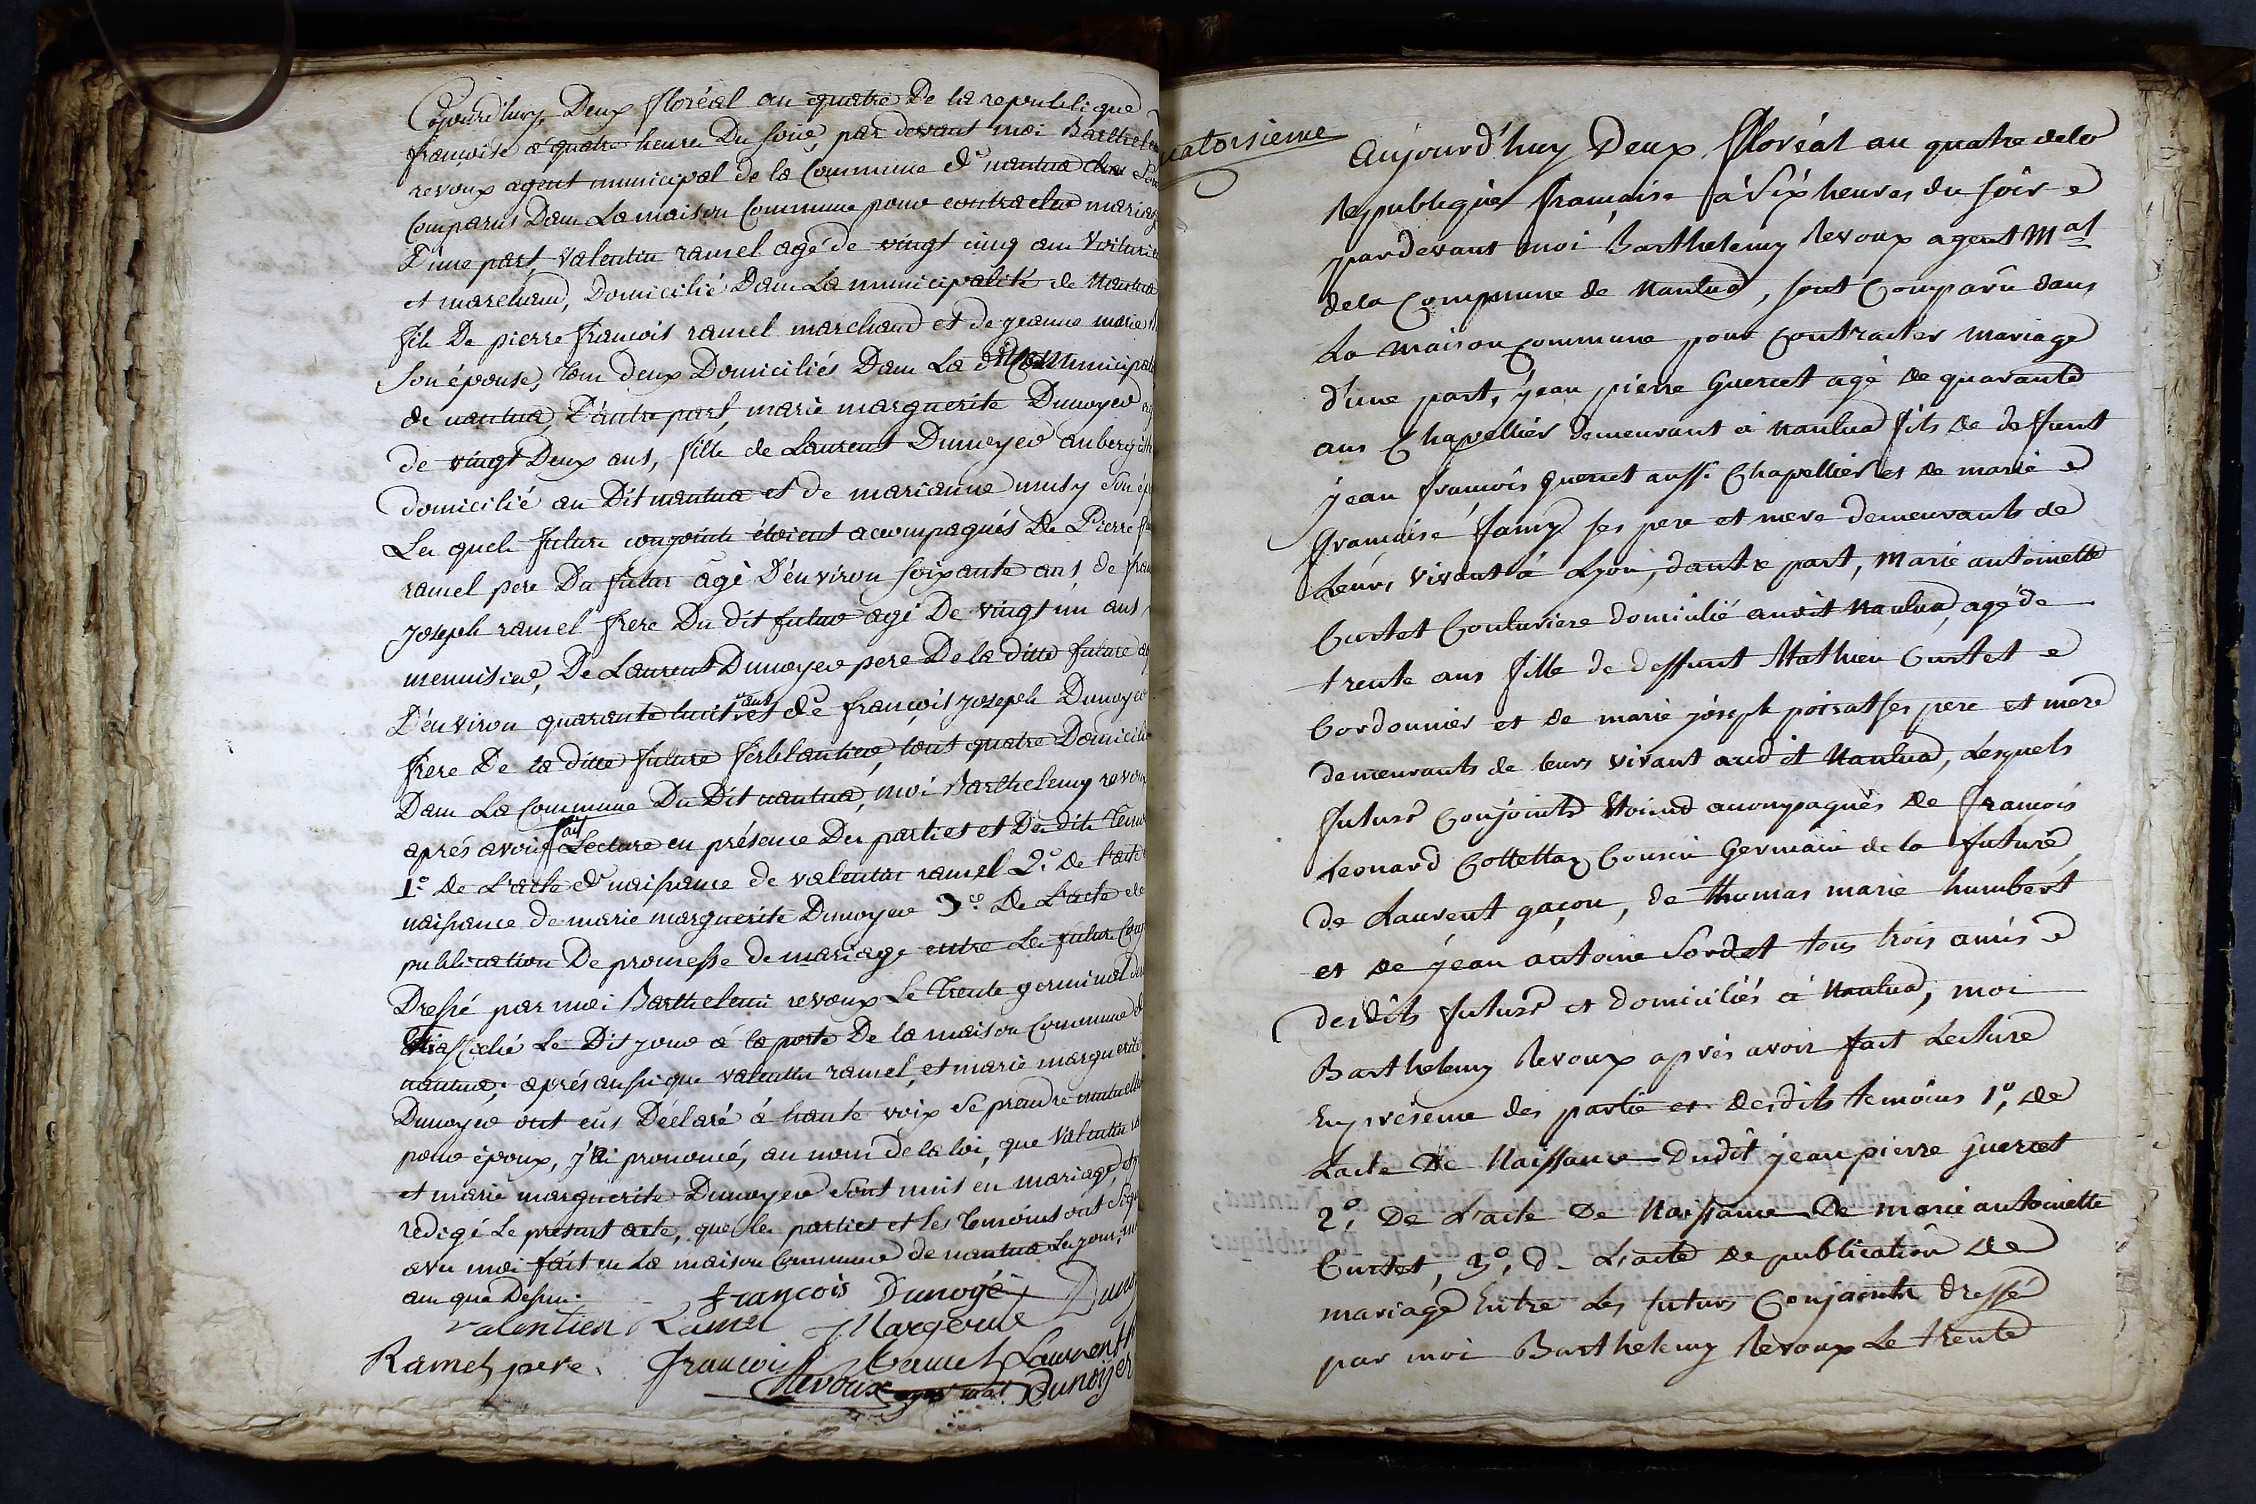 Aujourd'huy, Deux floréal an quatre De la republique
françoise à quatre heures Du soir, par devant moi Barthelemi
revoux agent municipal de la Commune de nantua
Comparus Dans La maison Commune pour contracter mariage
D'une part, Valentin ramel agé de vingt cinq ans Voiturier
et marchand, Domicilié Dans La municipalité de Nantua
fils De pierre françois ramel marchand et de jeanne marie
Son épouse, tous deux Domiciliés Dans La ditte municipalité
de nantua, D'autre part, marie marguerite Dunoyer
de vingt Deux ans, fille de Laurent Dunoyer aubergiste
domicilié au Dit nantua et de marianne musy Son
Les quels futurs conjoints étoient accompagnés De Pierre
ramel pere Du futur âgé D'environ soixante ans, de
joseph ramel frere Du dit futur agé De vingt un ans
menuisier, De Laurent Dunoyer pere De la ditte future
D'environ quarante huit ans et de françois joseph Dunoyer
frere De la ditte future ferblantier, tout quatre Domiciliés
Dans La Commune Du Dit nantua, moi Barthelemy revoux
aprés avoir fait Lecture en présence Des parties et Des dits Temoins
1.º De L'acte de naissance de valentin ramel 2.º de l'acte de
naissance de marie marguerite Dunoyer 3.º De L'acte de
publication De promesse de mariage entre Les futurs
Dressé par moi Barthelemi revoux Le Trente germinal
affiché Le Dit jour à la porte De la maison Commune de
nantua; aprés aussi que valentin ramel, et marie marguerite
Dunoyer ont eus Déclaré à haute voix Se prendre mutuellement
pour époux, j'ai prononcé, au nom de la loi, que Valentin
et marie marguerite Dunoyer Sont unis en mariage,
redigé Le présent acte, que les parties et les temoins ont Signé
avec moi fait en La maison Commune de nantua Les jour,
an que Dessus.
françois Dunoyé
Valentien Ramel Margerite
Ramel pere. françois Ramel Laurent
Revoux agent mal Dunoyer
quatorsieme
Aujourd'huy Deux floréal an quatre de la
republique françaisse à Six heures du soir
pardevant moi Barthelemy Revoux agent Mal
de la Commune de Nantua, sont Comparû dans
La maison Commune pour Contracter mariage
d'une part, jean pierre Guerret agé de quarante
ans Chapellier demeurant à Nantua fils de deffunt
jean françois guerret aussi Chapellier et de marie
françoise famy ses pere et mere demeurants de
Leurs vivant à Lyon, dautre part, Marie antoinette
Curtet Couturiere domicilié audit Nantua, agé de
trente ans fille de deffunt Mathieu Curtet
Cordonnier et de marie joseph poisat ses pere et mere
demeurants de leurs vivant audit Nantua, Lesquels
futurs Conjoints étoient accompagnés de françois
Leonard Collettaz Cousin Germain de la future,
de Laurent gaçon, de Thomas marie humbert
et de jean antoine Sordet tous trois amis
desdits futurs et domiciliés à Nantua, moi
Barthelemy Revoux aprés avoir fait Lecture
En présence des partie et desdits temoins 1º, de
L'acte de Naissance Dudit jean pierre Guerret
2º, De L'acte De Naissance De marie antoinette
Curtet, 3º, d. L'acte de publication de
mariage Entre Les futurs Conjoints dressé
par moi Barthelemy Revoux Le trente